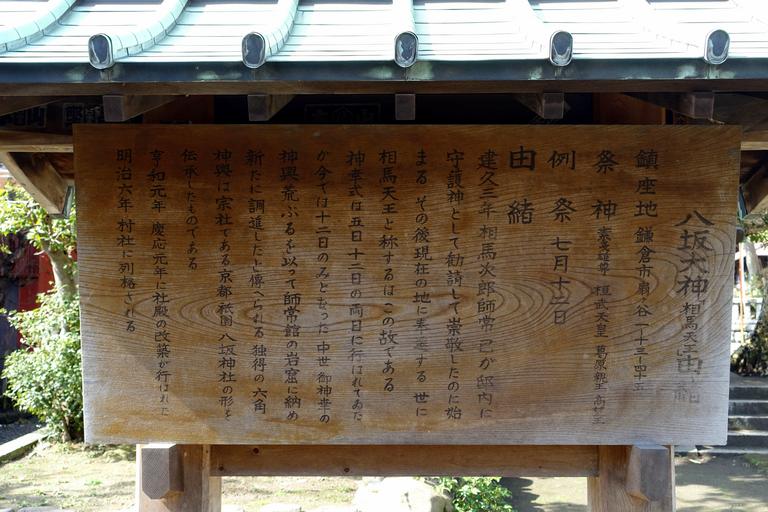 八坂大神「相馬天王」由緒
鎮座地 鎌倉市扇ヶ谷一ー十三ー四十五
祭神 素戔嗚尊 桓武天皇 葛原親王 高望王
例祭 七月十二日
由緒
建久三年 相馬次郎師常 己が邸内に
守護神として勧請して崇敬したのに始
まる その後現在の地に奉遷する 世に
相馬天王と称するはこの故である
神幸式は五日十二日の両日に行はれてゐた
が今では十二日のみとなった 中世 御神幸の
神輿荒ぶるを以って師常館の岩窟に納め
新たに調進したと傳へられる 独得の六角
神輿は宗社である京都祇園八坂神社の形を
伝承したものである
享和元年 慶応元年に社殿の改築が行はれた
明治六年 村社に列格される